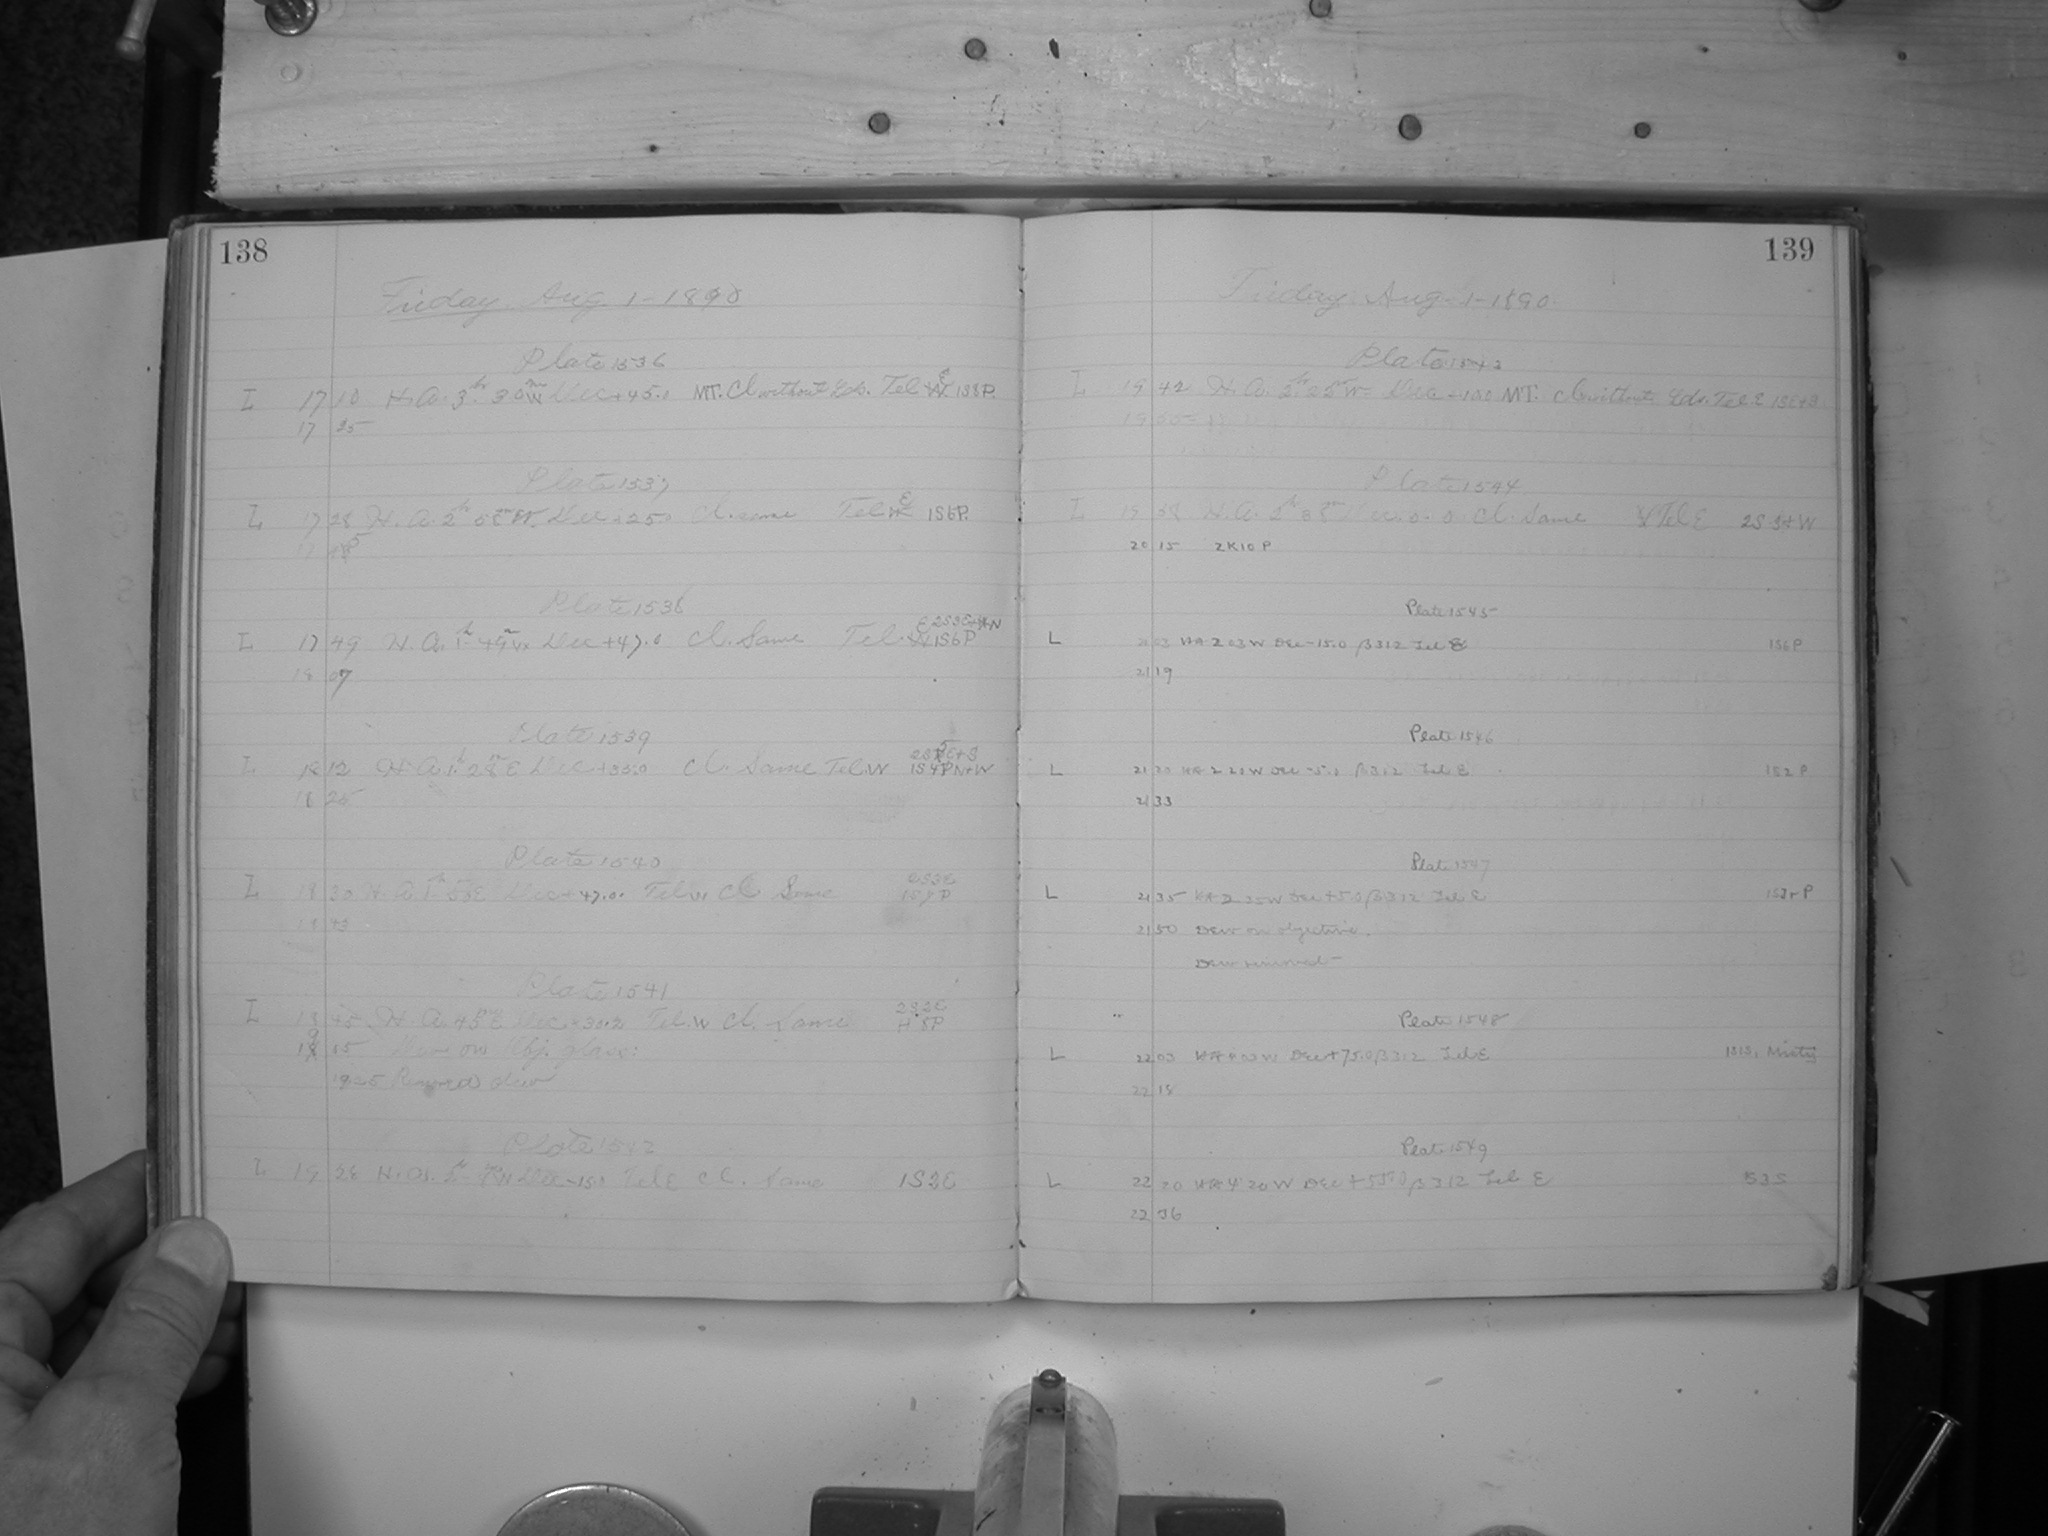 138
Friday Aug 1-1890
Plate 1536
L 17 10 H.A. 3h 30m W Dec +45.0 MT. Cl without Eds. Tel E 1S8P.
17 25
Plate 1537
L 17 28 H.A. 2h Dec +25.0 Cl. same Tel E 1S6P.
17
Plate 1538
2S3E+N
L 17 49 H.A. 1h 49m W Dec +47.0 Cl. Same Tel E 1S6P
18 07
Plate 1539
E+S
L 18 12 H.A. 1h 28m E Dec +35.0 Cl. Same Tel. W 1S4P N+W
18 25
Plate 1540
2S3E
L 18 30 H.A. 1h Dec +47.0. Tel W Cl Same
18 43
Plate 1541
2S2E
L 18 45 H.A. 45 E Dec +30.2 Tel. W Cl. Same
19 05 Dew on Obj. glass.
19 25 Removed dew
Plate 1542
L 19 28 H.A. Dec -15.0 Tel E Cl. Same 1S2E
139
Friday Aug-1-1890.
Plate 1543
L 19 42 H.A. 2h 22m W Dec MT. Cl without Eds. Tel E 1S
19 55
Plate 1544
L 19 58 H.A. 2h Dec 0.0 Cl. Same Tel E 2S3+W
20 15 2K10P
Plate 1545
L 21 03 HA 2 03 W Dec -15.0 β312 Tel E 1S6P
21 19
Plate 1546
L 21 20 HA 2 20 W Dec -5.0 β312 Tel E 1S2P
21 33
Plate 1547
L 21 35 HA 2 35 W Dec +5.0 β312 Tel E P
21 50 Dew on objective.
Dew removed-
Plate 1548
L 22 03 HA 4 03 W Dec +75.0 β312 Tel E 1S1S, Misty
22 18
Plate 1549
L 22 20 HA 4 20 W Dec +55.0 β312 Tel E
22 36